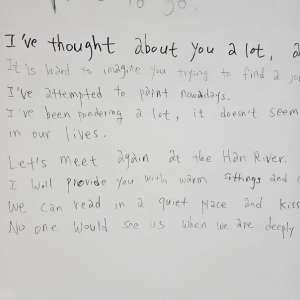 to go.
I've thought about you a lot, a
It is hard to imagine you trying to find a jo
I've attempted to paint nowadays.
I've been pondering a lot, it doesn't seem
in our lives.
Let's meet again at the Han River.
I will provide you with warm and
We can read in a quiet place and kiss
No one would see us when we are deeply